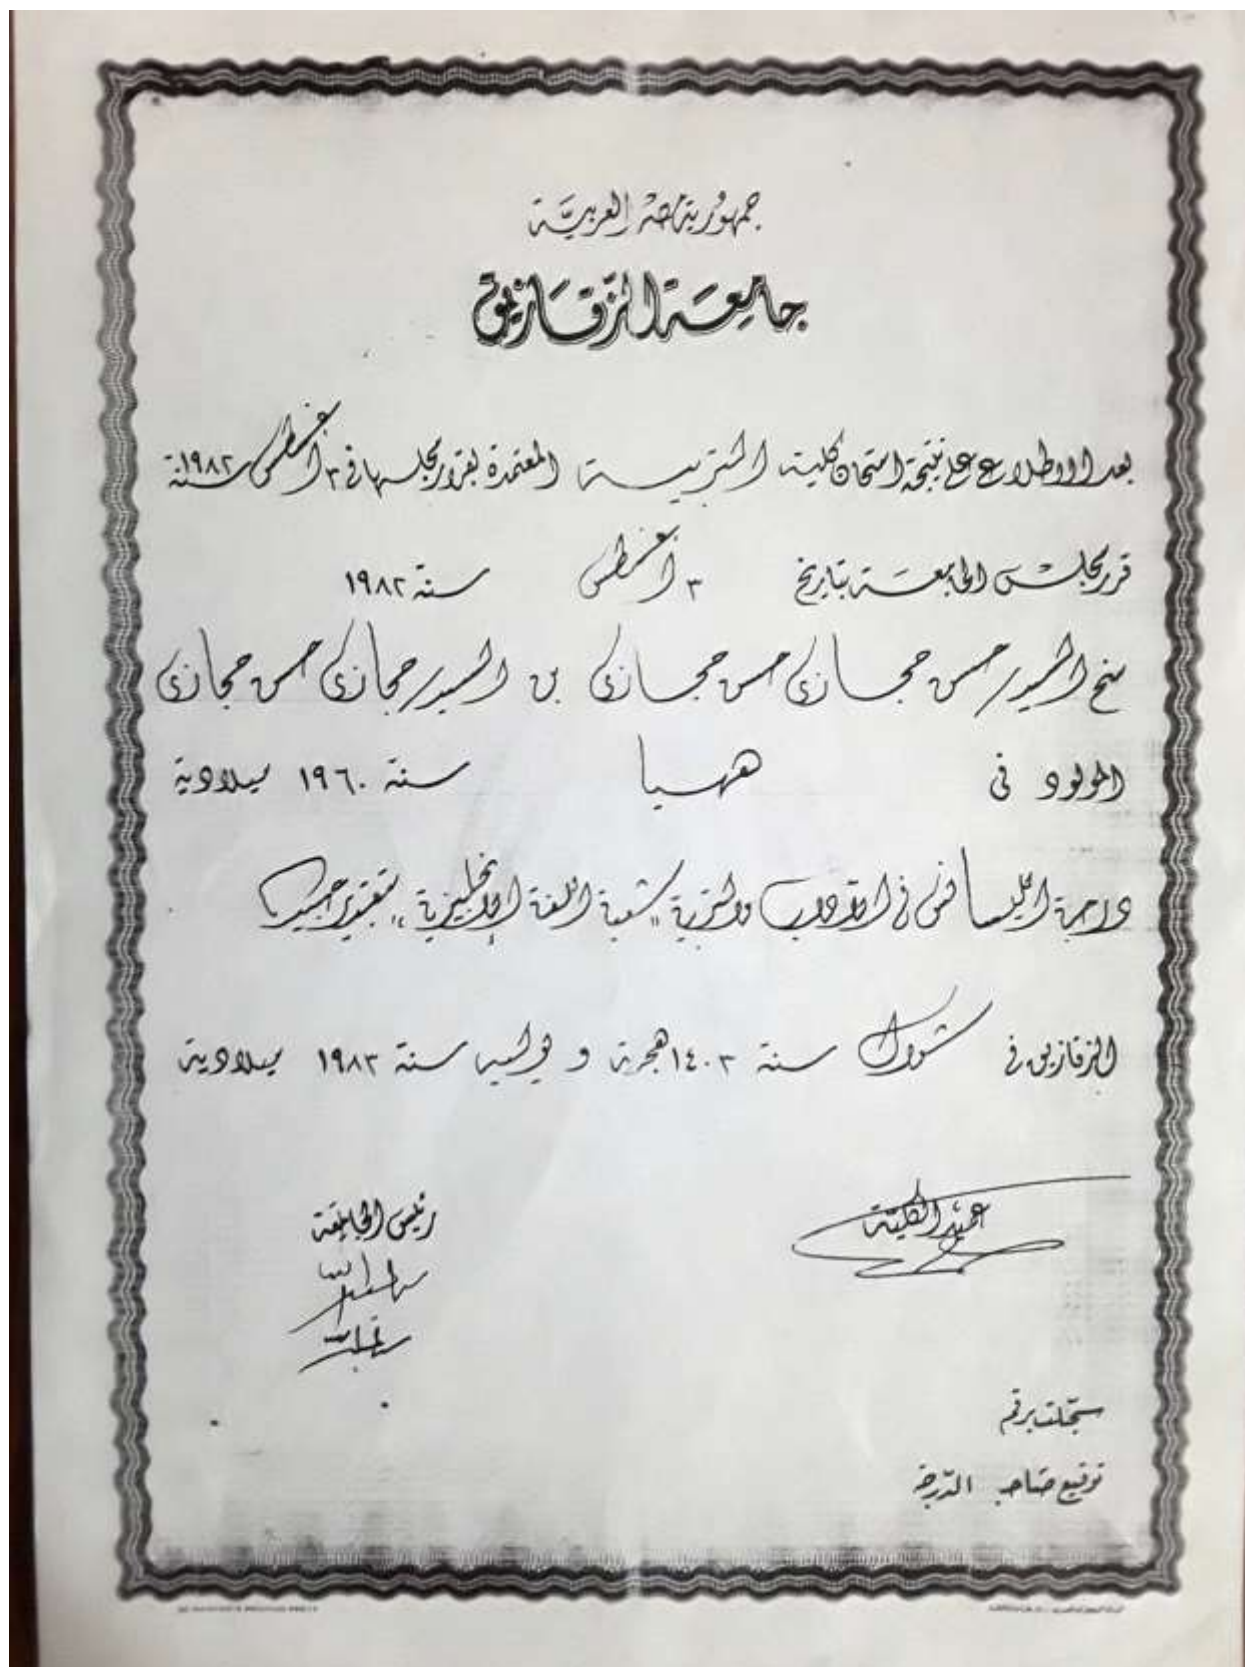 جمهورية مصر العربية
جامعة الزقازيق
بعد الاطلاع على نتيجة امتحان كلية التربية المعتمدة بقرار مجلسها في ٣ أغسطس سنة ١٩٨٢
قرر مجلس الجامعة بتاريخ ٣ أغسطس سنة ١٩٨٢
منح السيد/ حسن حجازى حسن حجازى بن السيد/ حجازى حسن حجازى
المولود فى ههيا سنة ١٩٦٠ ميلادية
درجة الليسانس في الآداب والتربية "شعبة اللغة الإنجليزية" بتقدير جيد
الزقازيق في شوال سنة ١٤٠٣ هجرية و يوليه سنة ١٩٨٣ ميلادية
عميد الكلية
رئيس الجامعة
سجلت برقم
توقيع صاحب الدرجة